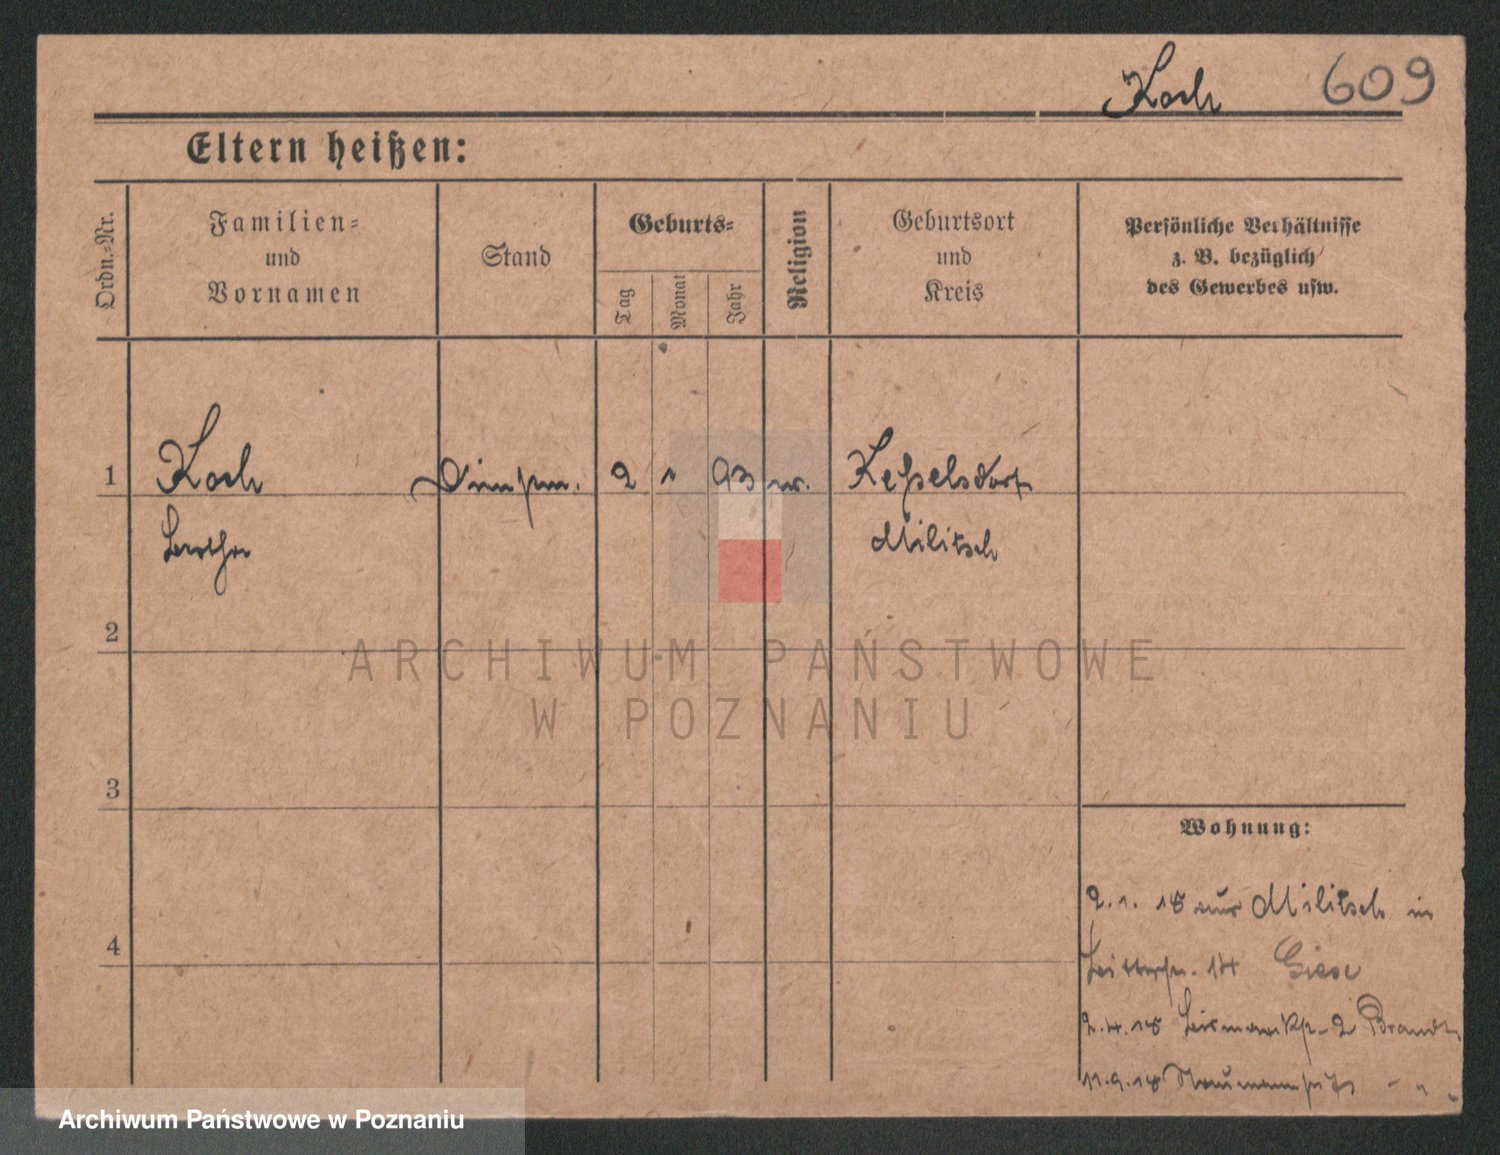 Koch 609
Eltern heißen:
Ordn.-Nr.
Familien-
und
Vornamen
Stand
Geburts-
Tag
Monat
Jahr
Religion
Geburtsort
und
Kreis
Persönliche Verhältnisse
z. B. bezüglich
des Gewerbes usw.
1 Koch 2 1 93 Kesselsdorf
Militsch
2
ARCHIWUM PAŃSTWOWE
W POZNANIU
3
Wohnung:
4
2.1.18 aus Militsch in
14 Giese
2.4.18 Bismarckstr. 2 Brandt
11.9.18
Archiwum Państwowe w Poznaniu